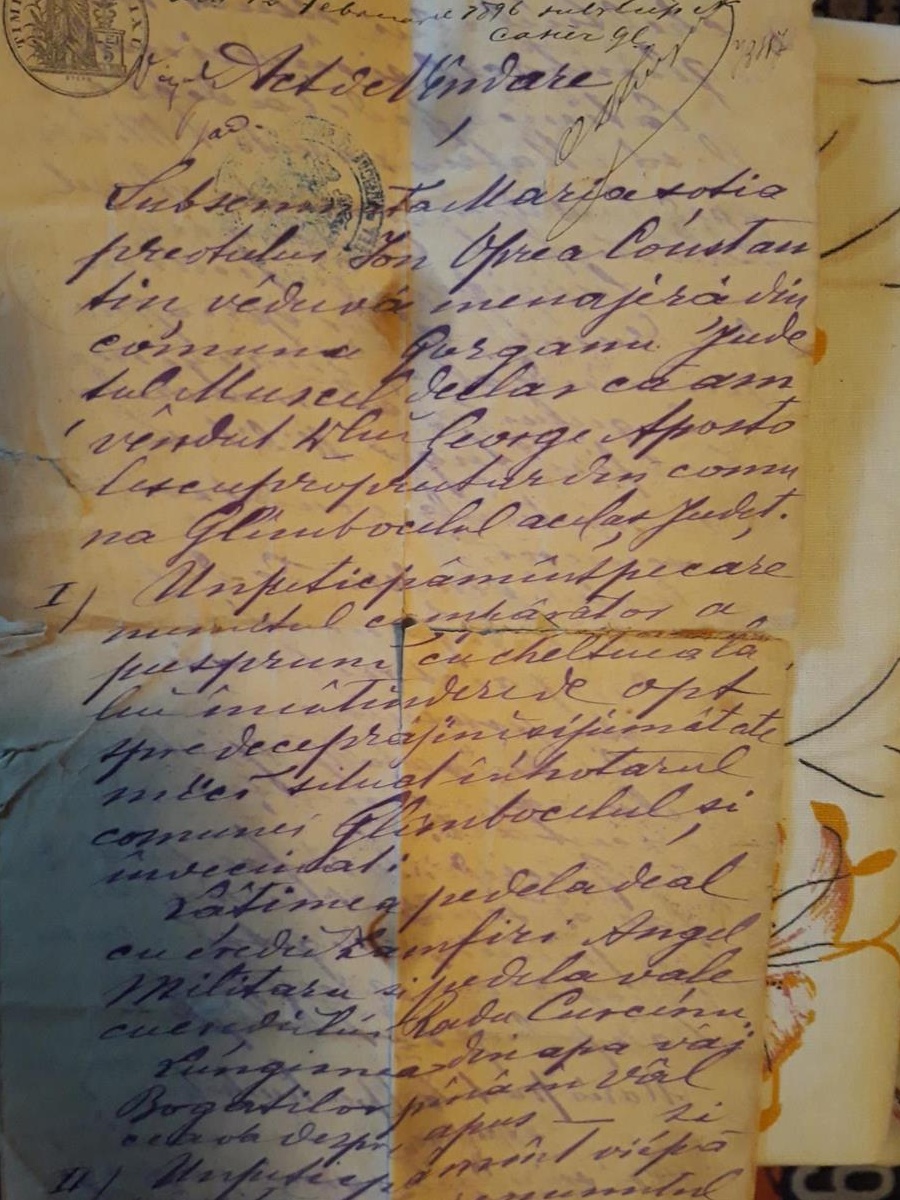 12 Februarie 1896
Act de Vîndare
Subsemnata Maria soția
preotului Ion Oprea Constan
tin vĕduvă menajeră din
comuna Gorganu Jude
țul Muscel declar că am
vêndut Dlui George Aposto
lescu propriutar din comu
na Glîmbocelul acelaș Județ.
I) Un petic pămînt pe care
numitul cumpărator a
pus pruni cu cheltueala
lui în întindere de opt
spre dece prăjini și jumătate
mici situat în hotarul
comunei Glîmbocelul și
învecinat:
Lățimea pe dela deal
cu Zamfiri Angel
Militaru și pe dela vale
Radu Curcinu
Lungimea din apa văi
Bogatilor pînă în Vâl
apus — și
II) Un petic pămînt
numitul